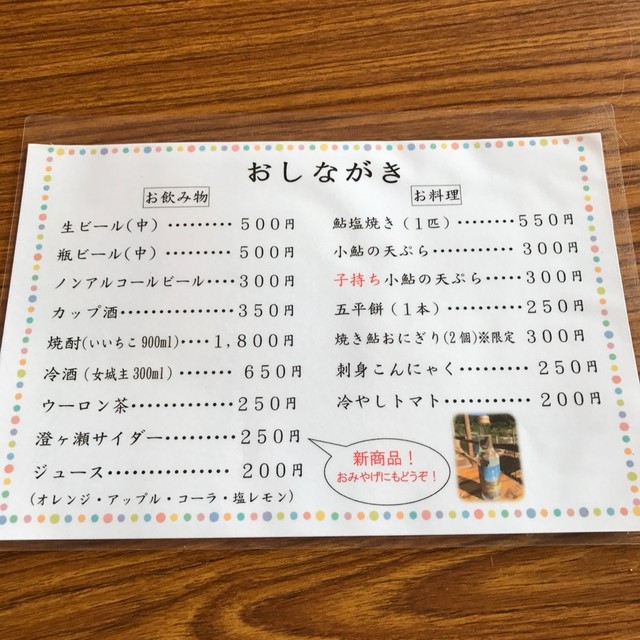 おしながき
お飲み物
生ビール(中)………500円
瓶ビール(中)………500円
ノンアルコールビール…300円
カップ酒……………350円
焼酎(いいちこ900ml)…1,800円
冷酒(女城主300ml)……650円
ウーロン茶……………250円
澄ヶ瀬サイダー………250円
ジュース………………200円
(オレンジ・アップル・コーラ・塩レモン)
お料理
鮎塩焼き(1匹)………550円
小鮎の天ぷら…………300円
子持ち小鮎の天ぷら……300円
五平餅(1本)…………250円
焼き鮎おにぎり(2個)※限定 300円
刺身こんにゃく………250円
冷やしトマト…………200円
新商品!
おみやげにもどうぞ!